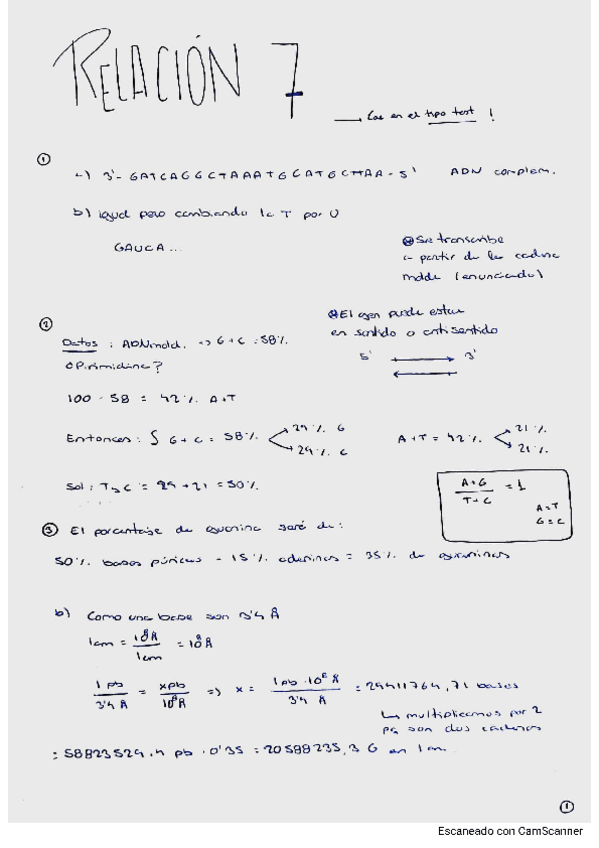 RELACIÓN 7
→ Cae en el tipo test!
①
a) 3'- GATCAGGCTAAATGCATGCTTAA - 5' ADN complem.
b) igual pero cambiando la T por U
GAUCA...
Se transcribe
a partir de la cadena
molde (enunciado)
②
Datos: ADNmold. => G+C = 58%
¿Pirimidina?
El gen puede estar
en sentido o antisentido
5' 3'
100 - 58 = 42% A+T
Entonces: G+C = 58% 29% G
29% C
A+T = 42% 21%
21%
Sol: T y C = 29 + 21 = 50%
A+G / T+C = 1
A=T
G=C
③ El porcentaje de guanina será de:
50% bases púricas - 15% adeninas = 35% de guaninas
b) Como una base son 3'4 Å
1cm = 10⁸Å / 1cm = 10⁸Å
1 pb / 3'4 Å = x pb / 10⁸Å => x = 1 pb · 10⁸ Å / 3'4 Å = 29411764,71 bases
↳ multiplicamos por 2
pq son dos cadenas
= 58823529,4 pb · 0'35 = 20588235,3 G en 1cm.
①
Escaneado con CamScanner